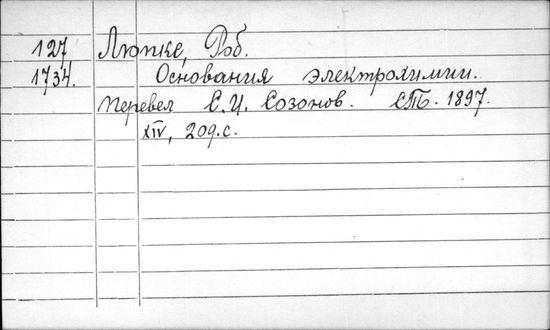 127 Люпке, Роб.
1734. Основания электрохимии.
Перевел С.И. Созонов. СПб. 1897.
XIV, 209.с.